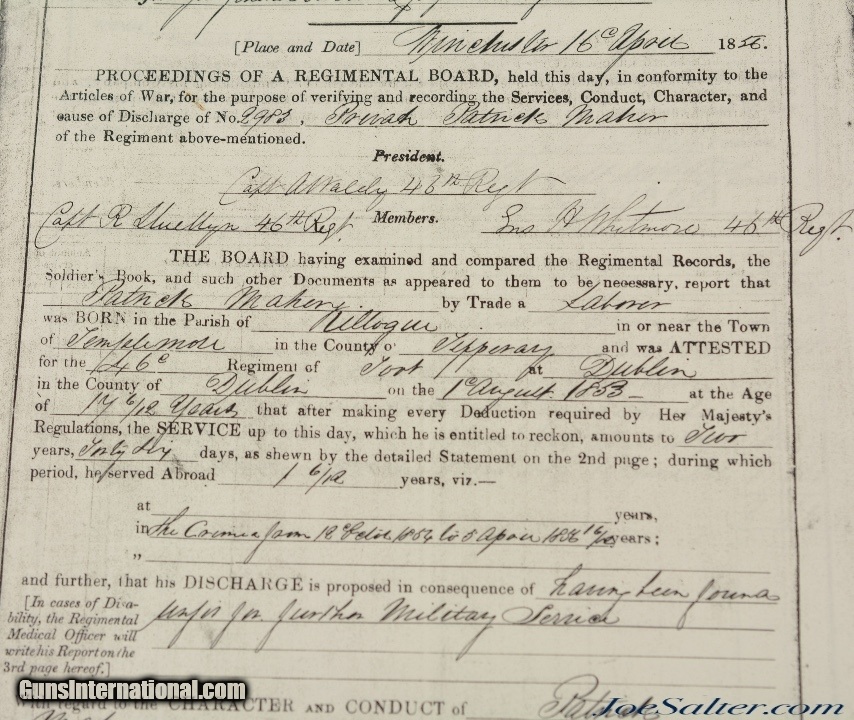 [Place and Date] Winchester 16th April 1856.
PROCEEDINGS OF A REGIMENTAL BOARD, held this day, in conformity to the
Articles of War, for the purpose of verifying and recording the Services, Conduct, Character, and
cause of Discharge of No. 2983, Private Patrick Maher
of the Regiment above-mentioned.
President.
Capt 46th Regt
Capt R Lluellyn 46th Regt. Members. Ens H Whitmore 46th Regt.
THE BOARD having examined and compared the Regimental Records, the
Soldier's Book, and such other Documents as appeared to them to be necessary, report that
Patrick Maher by Trade a Laborer
was BORN in the Parish of in or near the Town
of Templemore in the County of Tipperary and was ATTESTED
for the 46th Regiment of Foot at Dublin
in the County of Dublin on the 1st August 1853 at the Age
of 17 6/12 Years that after making every Deduction required by Her Majesty's
Regulations, the SERVICE up to this day, which he is entitled to reckon, amounts to Two
years, Forty Six days, as shewn by the detailed Statement on the 2nd page; during which
period, he served Abroad 1 6/12 years, viz.—
at years,
in the Crimea from Octob 1854 to 5 April 1856 1 6/12 years;
„
and further, that his DISCHARGE is proposed in consequence of having been found
[In cases of Disa-
bility, the Regimental
Medical Officer will
write his Report on the
3rd page hereof.]
unfit for further Military Service
With regard to the CHARACTER AND CONDUCT of Patrick
GunsInternational.com
JoeSalter.com